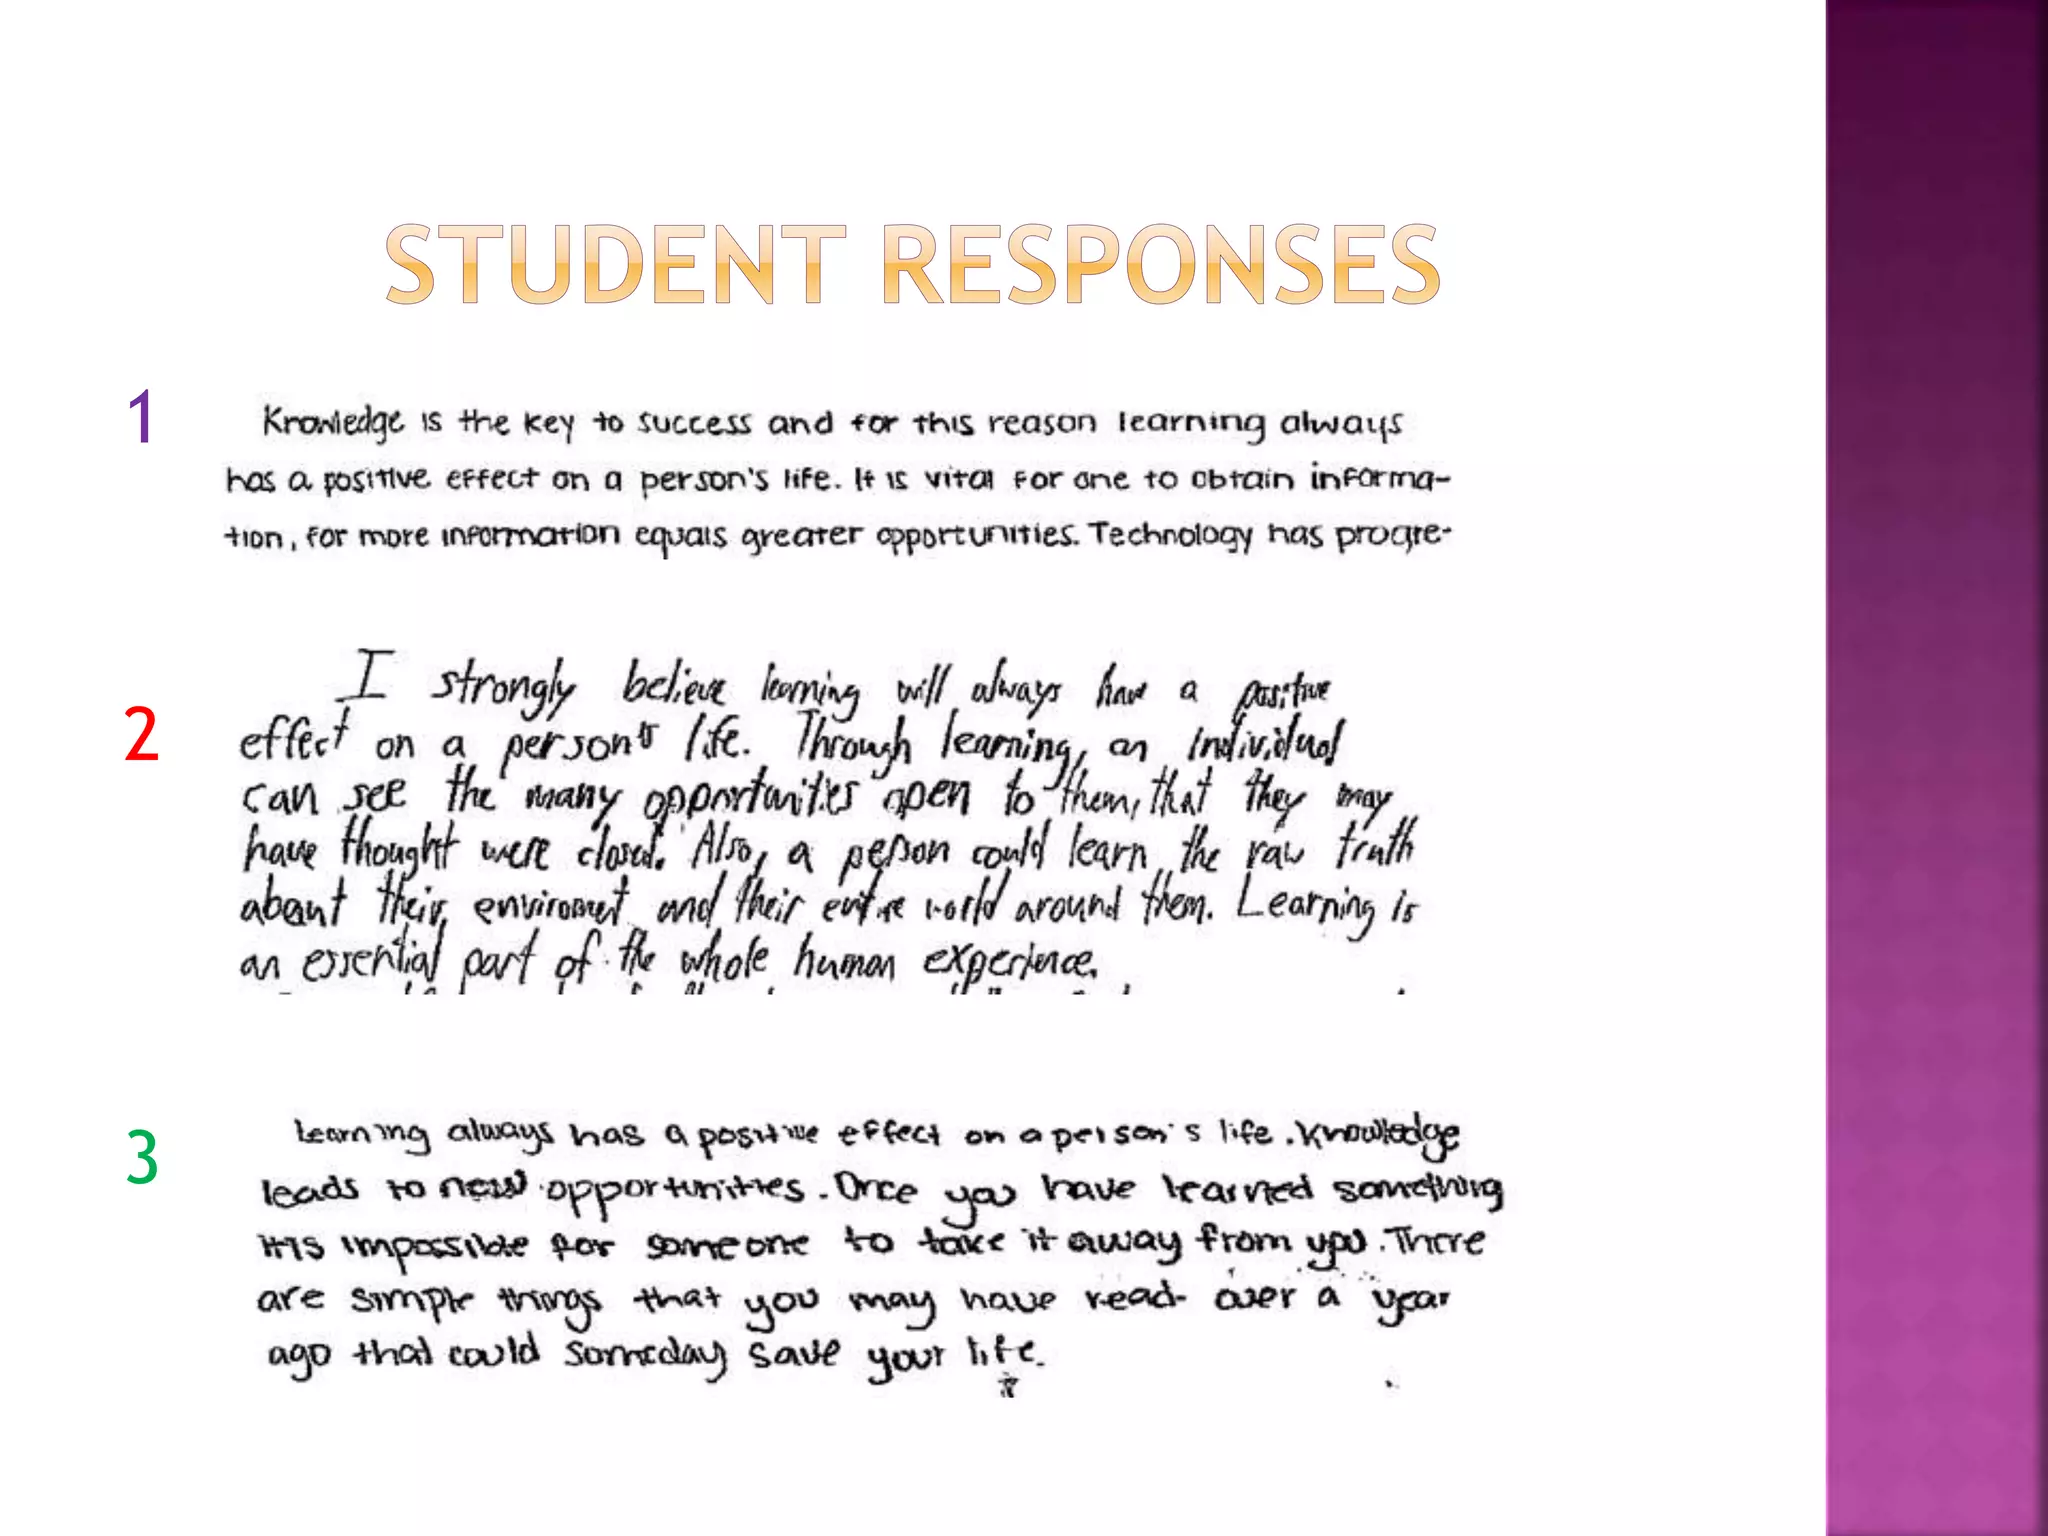 STUDENT RESPONSES
1
Knowledge is the key to success and for this reason learning always
has a positive effect on a person's life. It is vital for one to obtain informa-
tion, for more information equals greater opportunities. Technology has progre-
2
I strongly believe learning will always have a positive
effect on a person's life. Through learning, an individual
can see the many opportunities open to them, that they may
have thought were closed. Also, a person could learn the raw truth
about their enviroment and their entire world around them. Learning is
an essential part of the whole human experience.
3
Learning always has a positive effect on a person's life. Knowledge
leads to new opportunities. Once you have learned something
it is impossible for someone to take it away from you. There
are simple things that you may have read over a year
ago that could someday save your life.